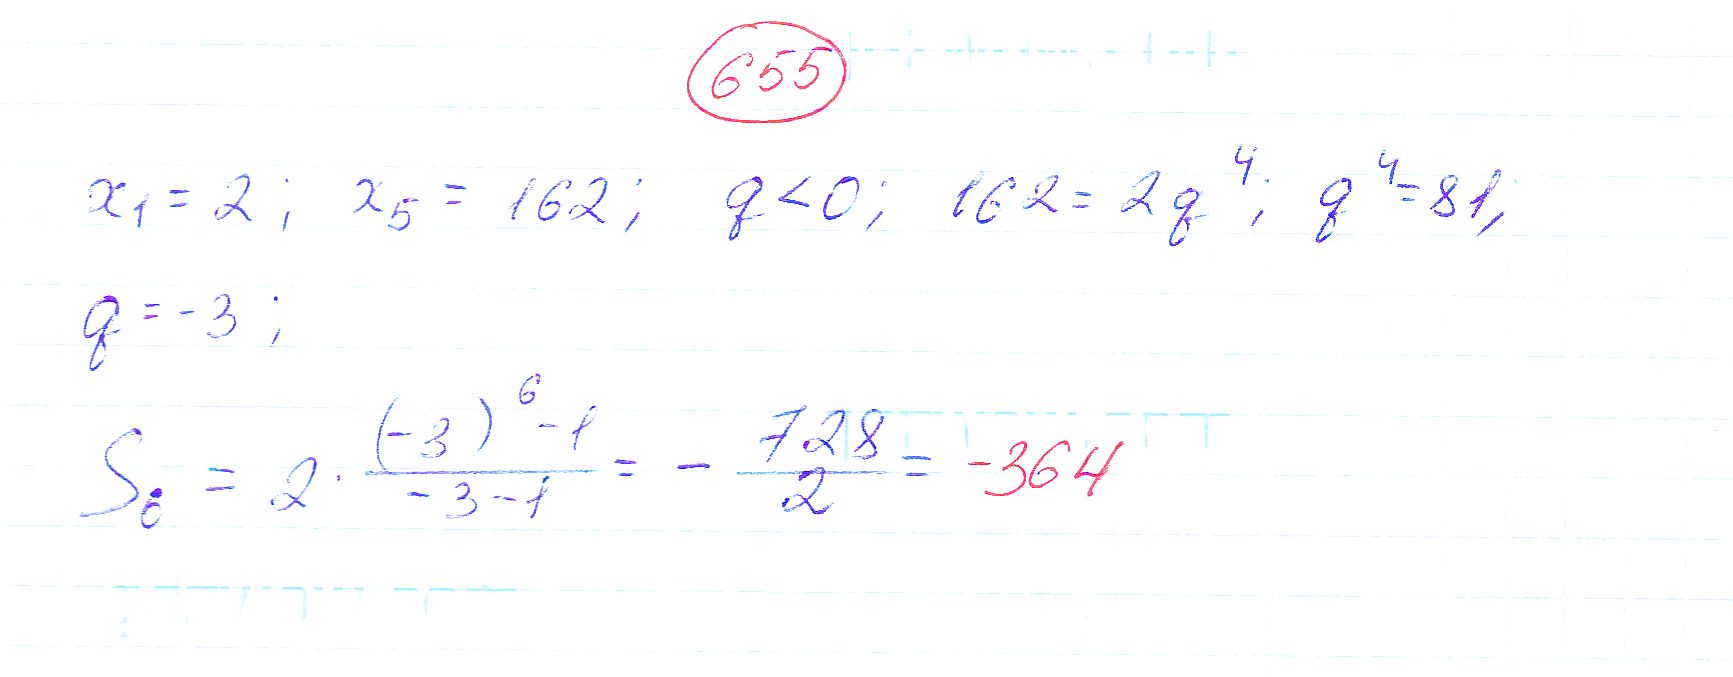 655
x₁ = 2; x₅ = 162; q < 0; 162 = 2q⁴; q⁴ = 81;
q = -3;
S₆ = 2 · ((-3)⁶ - 1)/(-3 - 1) = - 728/2 = -364